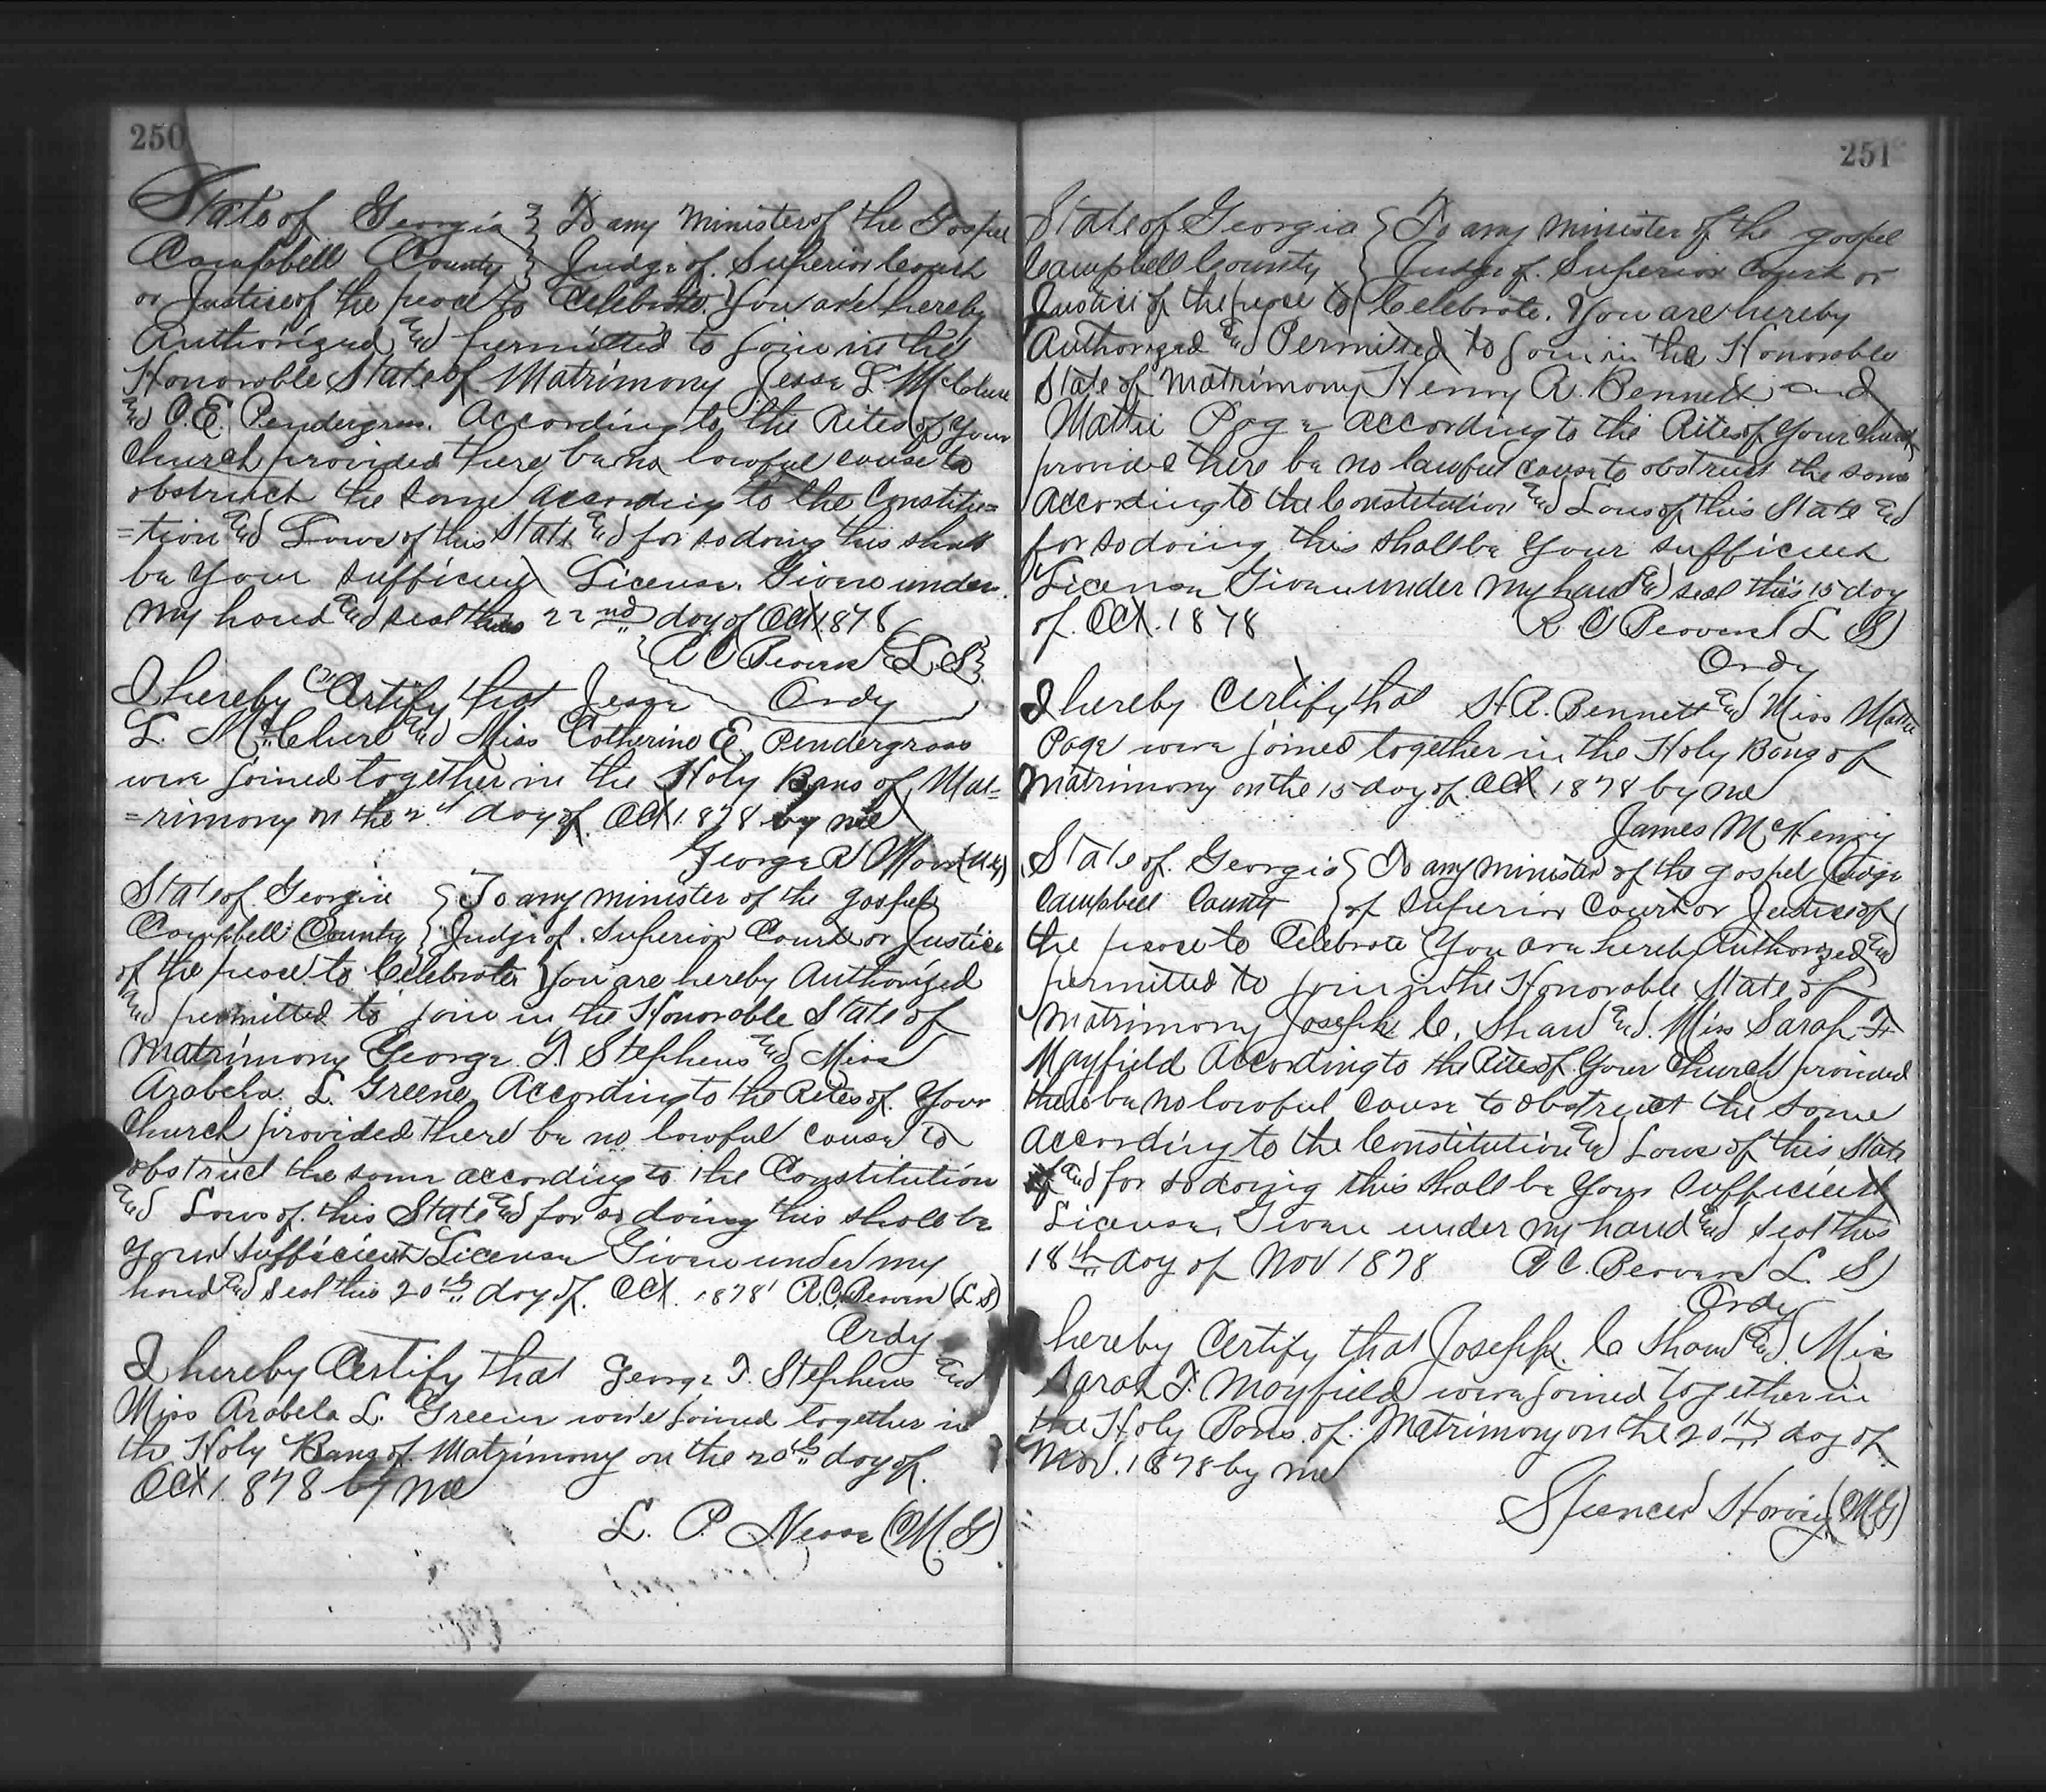 250
State of Georgia } To any Minister of the Gospel
Campbell County } Judge of Superior Court
or Justice of the peace to Celebrate. You are hereby
Authorized and permitted to join in the
Honorable State of Matrimony Jesse L McClure
and C. E. Pendergrass. According to the Rites of Your
Church provided there be no lawful cause to
obstruct the same according to the Constitu=
=tion and Laws of this State and for so doing this shall
be Your sufficient License. Given under
My hand and seal this 22nd day of Oct 1878
R C Beavers (L.S)
Ordy
I hereby Certify that Jesse
L. McClure and Miss Catherine E. Pendergrass
were joined together in the Holy Bans of Mat=
=rimony on the day of Oct 1878 by me
George R Moor
State of Georgia } To any minister of the gospel
Campbell County } Judge of Superior Court or Justice
of the peace to Celebrate You are hereby Authorized
and permitted to join in the Honorable State of
Matrimony George T. Stephens and Miss
Arabela. L. Greene According to the Rites of Your
Church provided there be no lawful cause to
obstruct the same according to the Constitution
and Laws of this State and for so doing this shall be
Your sufficient License Given under my
hand and seal this 20th day of Oct. 1878 R.C. Beavers (L S)
Ordy
I hereby Certify that George T. Stephens and
Miss Arabela L. Greene were joined together in
the Holy Bans of Matrimony on the 20th day of
Oct 1878 by me
L. P. Neese (M. G)
251
State of Georgia } To any minister of the gospel
Campbell County } Judge of Superior Court or
Justice of the peace to Celebrate. You are hereby
Authorized and Permitted to join in the Honorable
State of Matrimony Henry A. Bennett and
Mattie Page according to the Rites of Your Church
provide there be no lawful cause to obstruct the same
According to the Constitution and Laws of this State and
for so doing this shall be Your sufficient
License Given under my hand and seal this 15 day
of Oct. 1878 R C Beavers (L S)
Ordy
I hereby Certify that H A. Bennett and Miss Mattie
Page were joined together in the Holy Bans of
Matrimony on the 15 day of Oct 1878 by me
James McHenry
State of Georgia } To any minister of the gospel Judge
Campbell County } of Superior Court or Justice of
the peace to Celebrate You are hereby Authorized and
permitted to join in the Honorable State of
Matrimony Joseph C. Shaw and Miss Sarah F.
Mayfield According to the Rites of Your Church provided
there be no lawful cause to obstruct the same
According to the Constitution and Laws of this State
and for so doing this shall be Your sufficient
License. Given under my hand and seal this
18th day of Nov 1878 R C. Beavers L. S)
Ordy
hereby Certify that Joseph. C Shaw and Miss
Sarah F. Mayfield were joined together in
the Holy Bans of Matrimony on the 20th day of
Nov. 1878 by me
Spencer Harvey (M G)